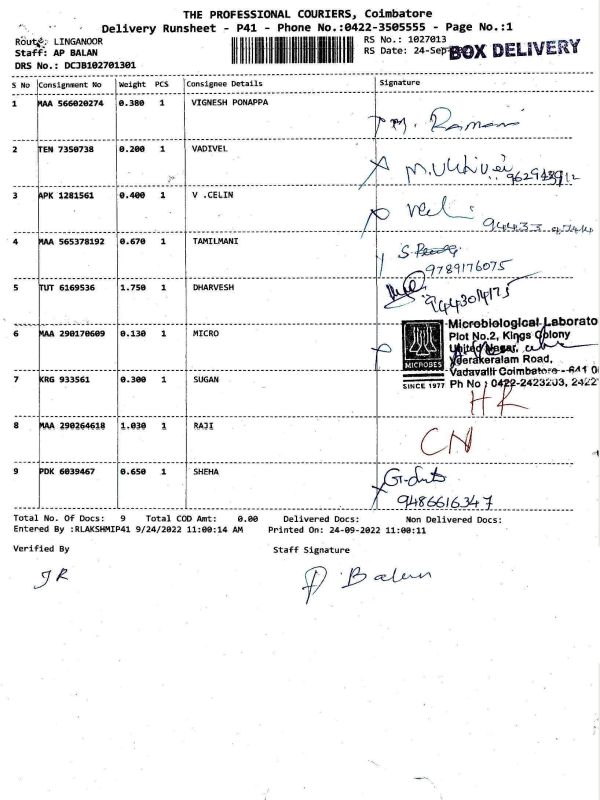 THE PROFESSIONAL COURIERS, Coimbatore
Delivery Runsheet - P41 - Phone No.:0422-3505555 - Page No.:1
Route: LINGANOOR
RS No.: 1027013
Staff: AP BALAN
RS Date: 24-Sep
BOX DELIVERY
DRS No.: DCJB102701301
S No Consignment No Weight PCS Consignee Details Signature
1 MAA 566020274 0.380 1 VIGNESH PONAPPA
M. Ramani
2 TEN 7350738 0.200 1 VADIVEL
3 APK 1281561 0.400 1 V .CELIN
4 MAA 565378192 0.670 1 TAMILMANI
9789176075
5 TUT 6169536 1.750 1 DHARVESH
9443014175
6 MAA 290170609 0.130 1 MICRO
Microbiological Laborato
Plot No.2, Kings Colony
United Nagar,
Veerakeralam Road,
Vadavalli Coimbatore - 641 0
Ph No : 0422-2423203, 2422
MICROBES
SINCE 1977
7 KRG 933561 0.300 1 SUGAN
HR
8 MAA 290264618 1.030 1 RAJI
CN
9 PDK 6039467 0.650 1 SHEHA
9486616347
Total No. Of Docs: 9 Total COD Amt: 0.00 Delivered Docs: Non Delivered Docs:
Entered By :RLAKSHMIP41 9/24/2022 11:00:14 AM Printed On: 24-09-2022 11:00:11
Verified By Staff Signature
JR
P Balan